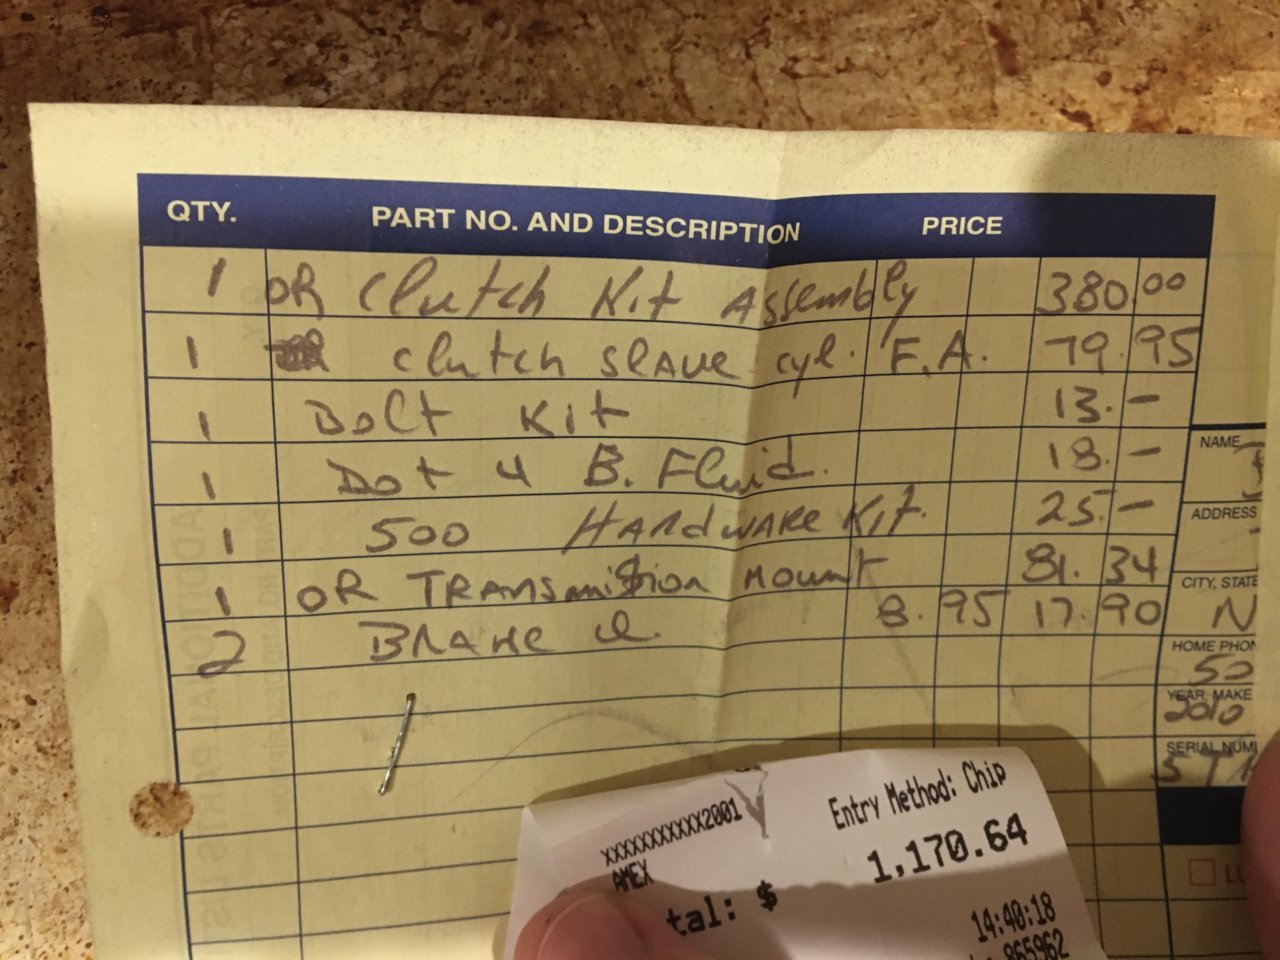 QTY. PART NO. AND DESCRIPTION PRICE
1 OR Clutch Kit Assembly 380.00
1 clutch slave cyl. F.A. 79.95
1 Bolt Kit 13.-
1 Dot 4 B. Fluid. 18.-
1 500 Hardware Kit. 25.-
1 OR Transmission Mount 81.34
2 Brake 8.95 17.90
NAME
ADDRESS
CITY, STATE
N
HOME PHON
50
YEAR, MAKE
2010
SERIAL NUM
XXXXXXXXXXX2001
AMEX
Entry Method: Chip
tal: $ 1,170.64
14:40:18
865962